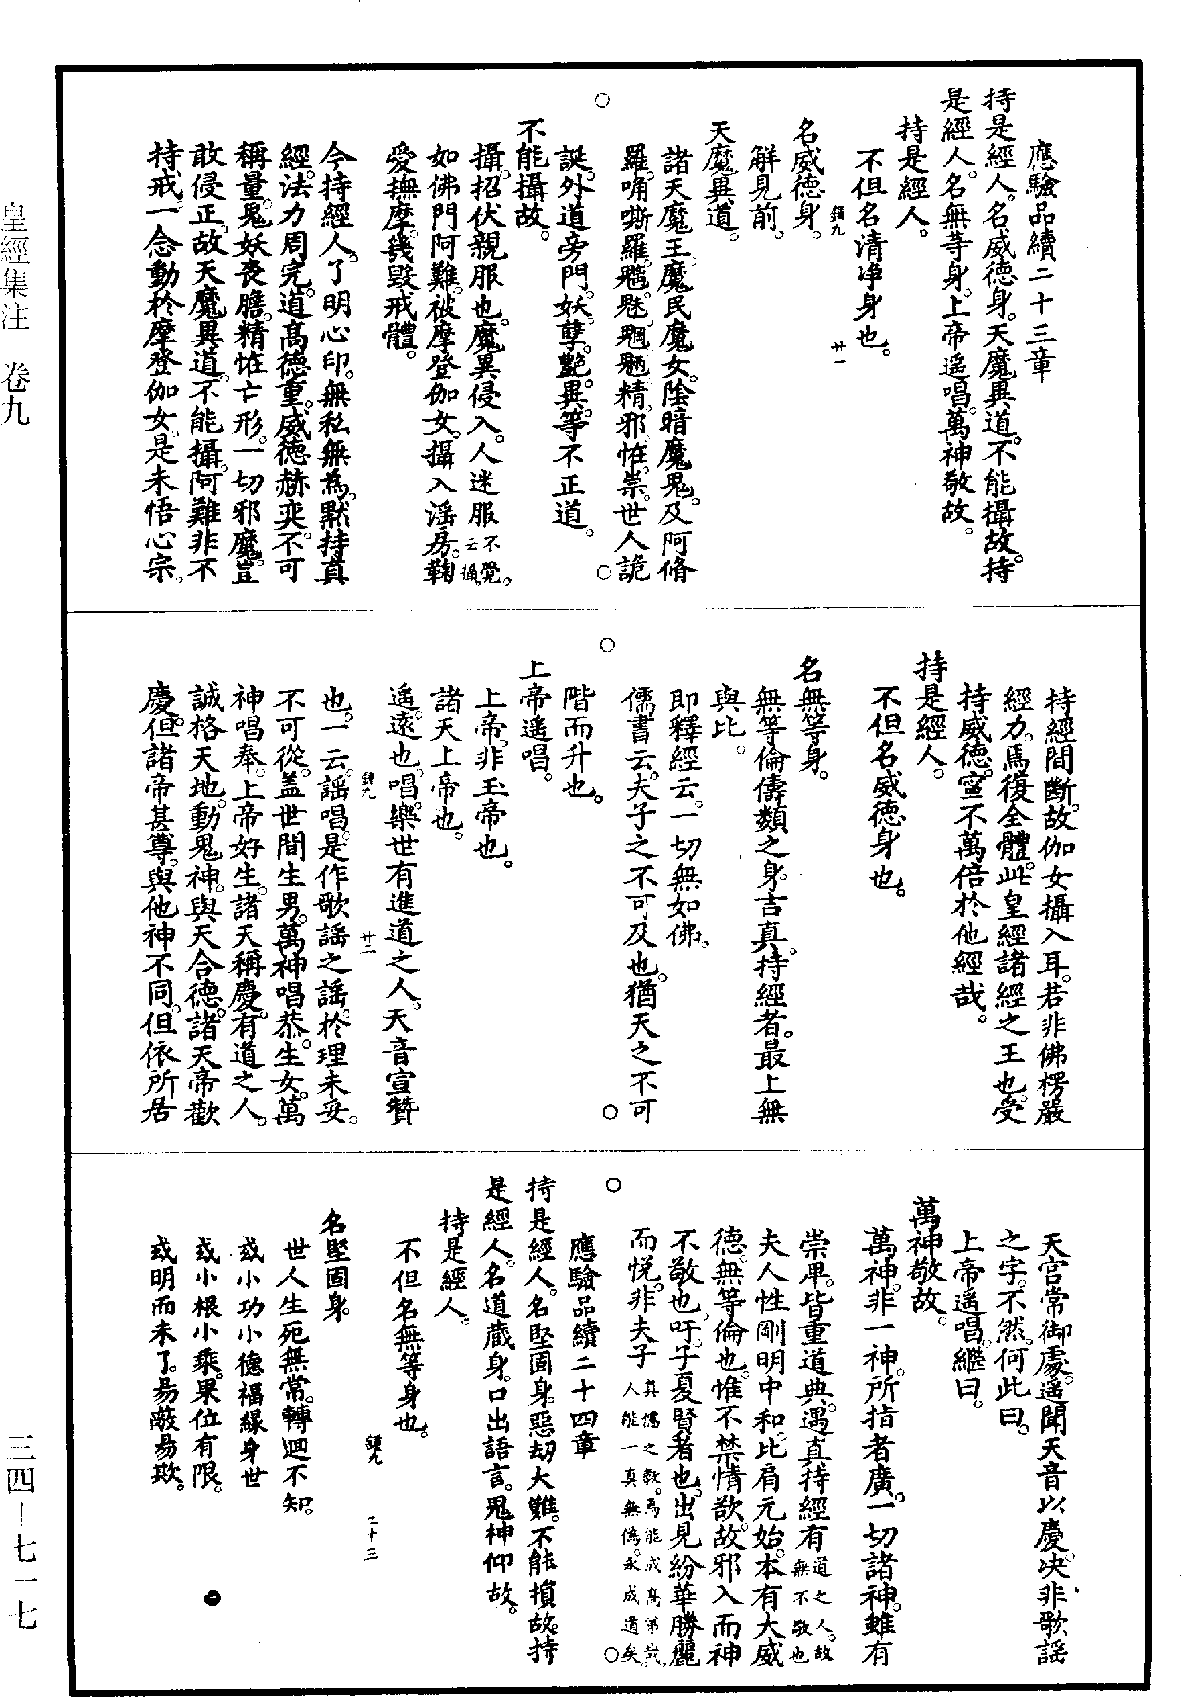 應驗品續二十三章
持是經人。名威德身。天魔異道。不能攝故。持
是經人。名無等身。上帝遥唱。萬神敬故。
持是經人。
不但名清净身也。
廿一
名威德身。
解見前。
天魔異道。
諸天魔王。魔民魔女。陰暗魔鬼。及阿脩
羅。唷嘶羅。魑魅魍魎。精邪怪祟。世人詭
誕。外道旁門。妖孽。艷異。等不正道。
不能攝故。
攝。招伏親服也。魔異侵入。人迷服不覺。云攝。
如佛門阿難。被摩登伽女。攝入淫房。鞠
愛撫摩。㡬毁戒體。
今持經人。了明心印。無私無為。默持真
經。法力周完。道高德重。威德赫奕。不可
稱量。鬼妖喪膽。精怪亡形。一切邪魔。豈
敢侵正。故天魔異道。不能攝。阿難非不
持戒。一念動於摩登伽女。是未悟心宗。
持經間斷。故伽女攝入耳。若非佛楞嚴
經力。焉復全體。此皇經諸經之王也。受
持威德。寧不萬倍於他經哉。
持是經人。
不但名威德身也。
名無等身。
無等倫儔類之身。吉真。持經者。最上無
與比。
即釋經云。一切無如佛。
儒書云。夫子之不可及也。猶天之不可
階而升也。
上帝遥唱。
上帝。非玉帝也。
諸天上帝也。
遥。遠也。唱。樂世有進道之人。天音宣贊
也。一云。謡唱。是作歌謡之謡。於理未妥。
廿二
不可從。盖世間生男。萬神唱恭。生女。萬
神唱奉。上帝好生。諸天稱慶。有道之人。
誠格天地。動鬼神。與天合德。諸天帝歡
慶。但諸帝甚尊。與他神不同。但依所居
天宫常御處。遥聞天音以慶。决非歌謡
之字。不然。何此曰。
上帝遥唱。繼曰。
萬神敬故。
萬神。非一神。所指者廣。一切諸神。雖有
崇卑。皆重道典。遇真持經有道之人。故無不敬也
夫人性剛明中和。比肩元始。本有大威
德。無等倫也。惟不禁情欲。故邪入而神
不敬也。吁。子夏賢者也。出見紛華勝麗
而悦。非夫子真儒之教。焉能成髙弟哉。人能一真無偽。永成道矣
應驗品續二十四章
持是經人。名堅固身。惡刼大難。不能損故。持
是經人。名道藏身。口出語言。鬼神仰故。
持是經人。
不但名無等身也。
二十三
名堅固身。
世人生死無常。轉迴不知。
或小功小德福緣身世
或小根小乘。果位有限。
或明而未了。易敵易欺。
皇經集注　卷九
三四—七一七